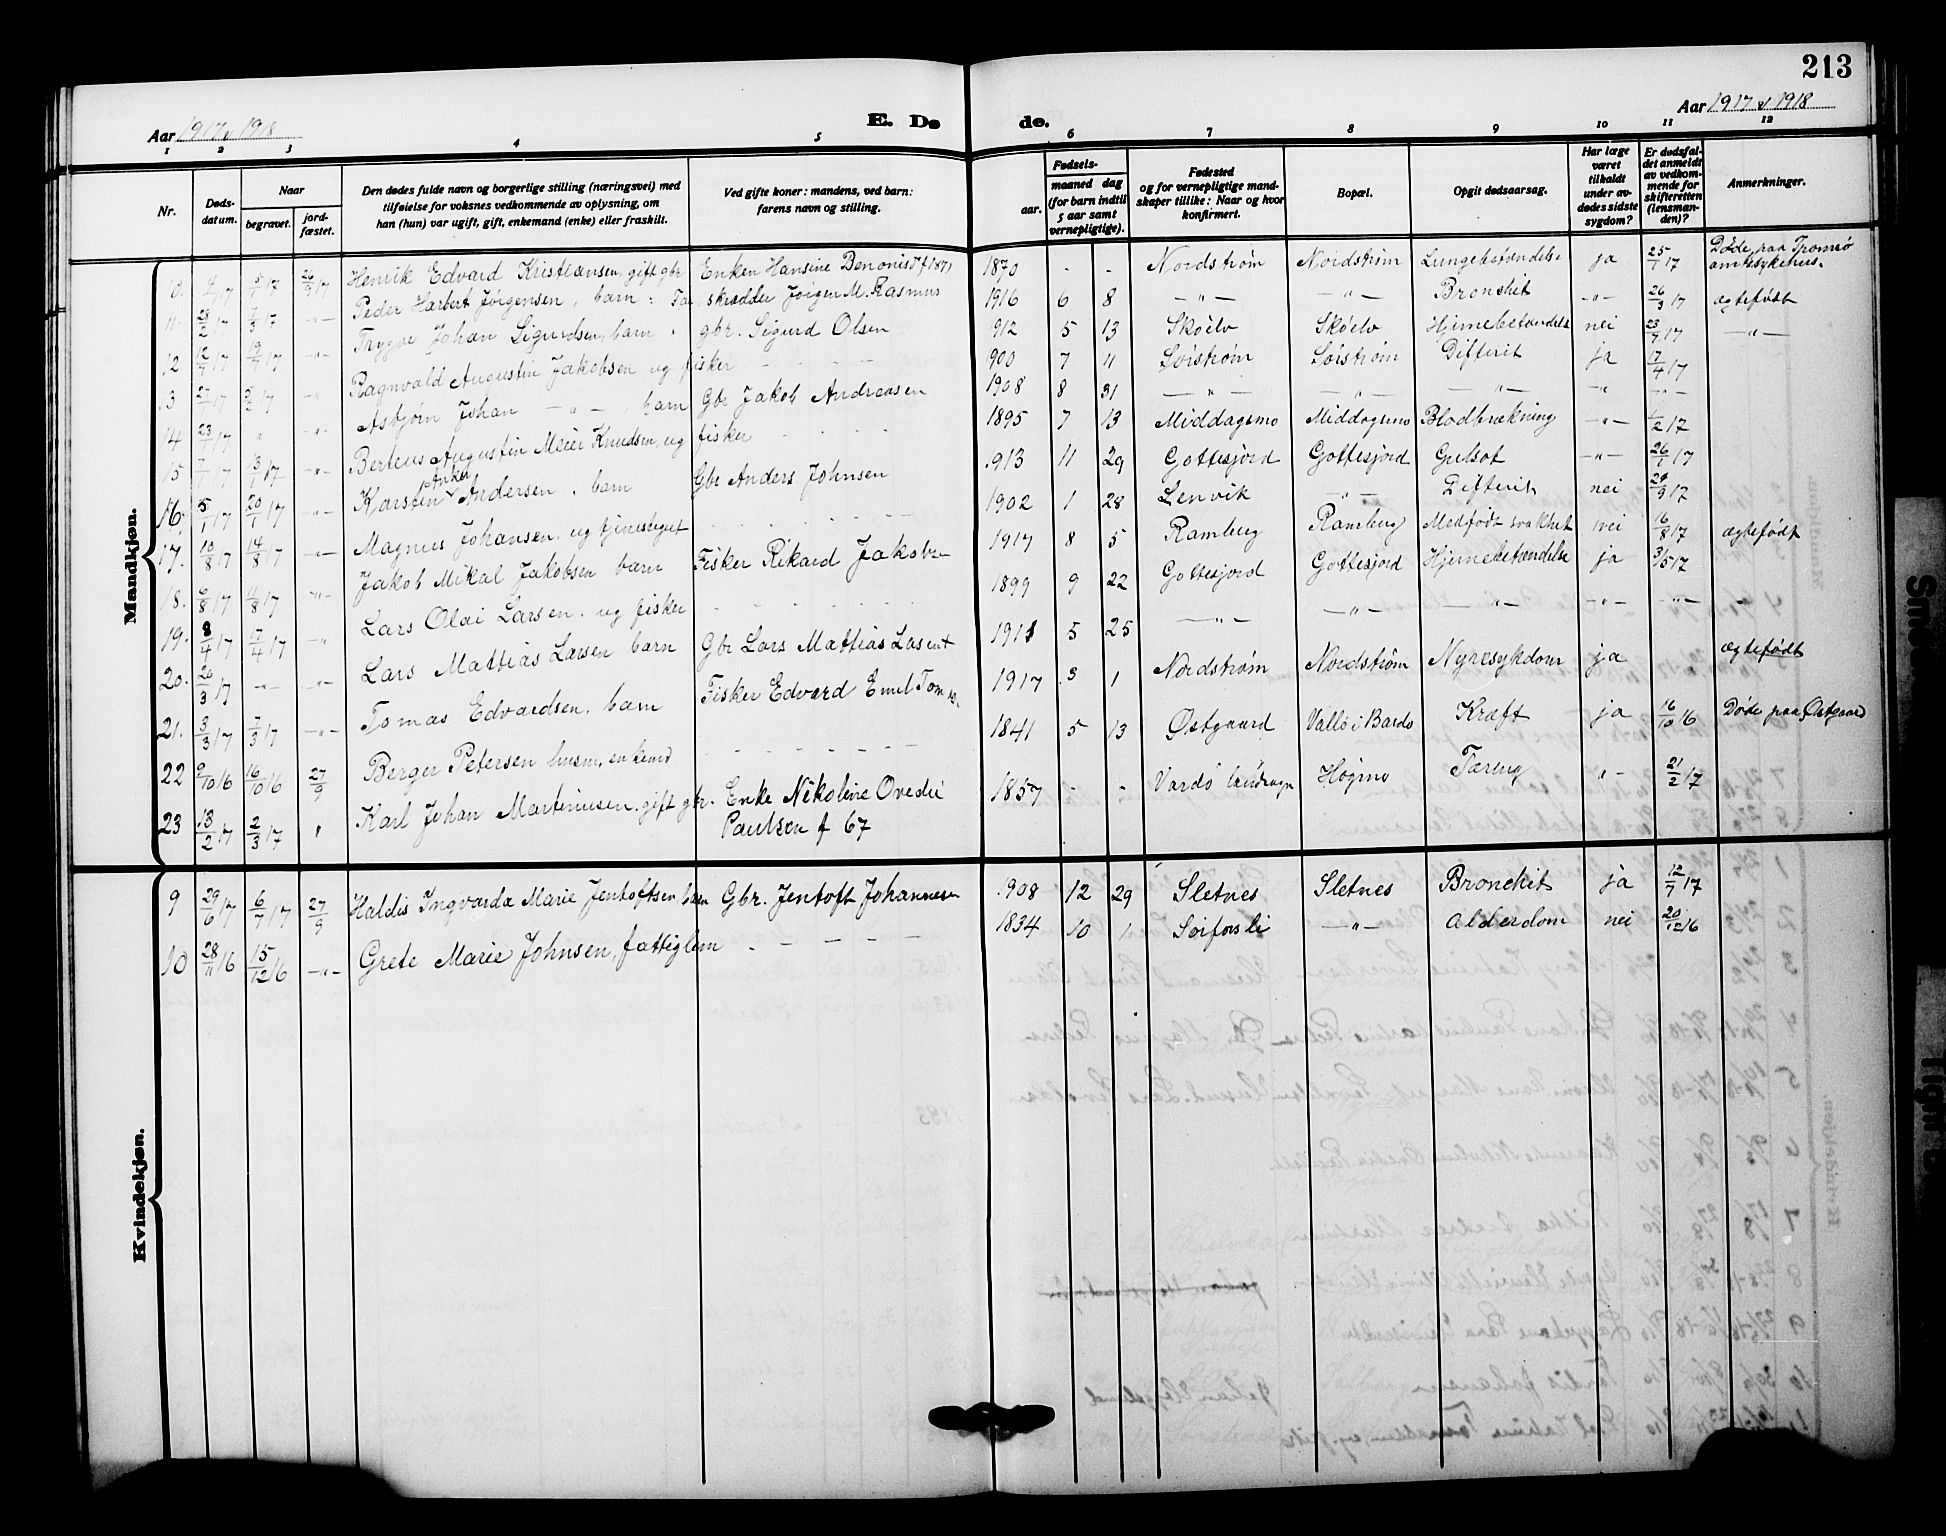 213
Aar 1917 & 1918 E. Dø de. Aar 1917 & 1918
1 2 3 4 5 6 7 8 9 10 11 12
Nr. Døds-datum. Naar begravet. jord-fæstet. Den dødes fulde navn og borgerlige stilling (næringsvei) med tilføielse for voksnes vedkommende av oplysning, om han (hun) var ugift, gift, enkemand (enke) eller fraskilt. Ved gifte koner: mandens, ved barn: farens navn og stilling. Fødsels- aar. maaned dag (for barn indtil 5 aar samt vernepligtige). Fødested og for vernepligtige mandskaper tillike: Naar og hvor konfirmert. Bopæl. Opgit dødsaarsag. Har læge været tilkaldt under avdødes sidste sygdom? Er dødsfaldet anmeldt av vedkommende for skifteretten (lensmanden)? Anmerkninger.
Mandkjøn.
10. 4/1 17 5/1 17 26/ 17 Henrik Edvard Kristiansen, gift gbr Enken Hansine Benonisd f 1871 1870 - - Nordstrøm Nordstrøm Lungebetændelse ja 25/1 17 Døde paa Tromsø amtssykehus.
11. 28/2 17 7/3 17 -"- Peder Harbert Jørgensen, barn: Far, skrædder Jørgen M. Rasmus 1916 6 8 -"- -"- Bronchit -"- 26/3 17 ægtefødt
12 12/7 17 19/7 17 -"- Trygve Johan Sigurdsen, barn, gbr. Sigurd Olsen 912 5 13 Skøelv Skøelv Hjernebetændelse nei 23/7 17 -"-
13 27/1 17 5/2 17 -"- Ragnvald Augustin Jakobsen ug fisker - - - 900 7 11 Sørstrøm Sørstrøm Difterit ja 17/4 17
14 23/1 17 " -"- Asbjørn Johan -"-, barn Gbr Jakob Andreasen 1908 8 31 -"- -"- -"- -"- -"-
15 7/1 17 13/1 17 -"- Berteus Augustin Meier Knudsen, ug fisker - - - 1895 7 13 Middagsmo Middagsmo Blodbrækning -"- 1/2 17
16. 5/1 17 20/1 17 -"- Karsten Anker Andersen, barn Gbr Anders Johnsen 1913 11 29 Gottesjord Gottesjord Gulsot -"- 26/1 17
17. 10/8 17 14/8 17 -"- Magnus Johansen, ug tjenestegut - - - 1902 1 28 Lenvik -"- Difterit nei 24/9 17
18. 6/8 17 11/8 17 -"- Jakob Mikal Jakobsen barn Fisker Rikard Jakobsen 1917 8 5 Ramberg Ramberg Medfødt svakhet nei 16/8 17 ægtefødt
19. 8/4 17 17/4 17 -"- Lars Olai Larsen, ug fisker - - - 1899 9 22 Gottesjord Gottesjord Hjernebetændelse ja 3/5 17
20. 20/3 17 -"- -"- Lars Mattias Larsen barn Gbr Lars Mattias Lasent 1911 5 25 -"- -"- -"- -"- -"- -
21. 3/3 17 7/3 17 -"- Tomas Edvardsen, barn Fisker Edvard Emil Tomas. 1917 3 1 Nordstrøm Nordstrøm Nyresykdom ja ægtefødt
22 9/10 16 16/10 16 27/9 Berger Petersen husm, enkemd - - - 1841 5 13 Østgaard Vallø i Bardo Kræft ja 16/10 16 Døde paa Østgaard
23 13/2 17 2/3 17 " Karl Johan Martinusen, gift gbr. Enke Nikoline Ovedie Paulsen f 67 1857 - - Vardø Høgmo Tæring "- 21/2 17
Kvindekjøn.
9 29/6 17 6/7 17 27/9 Haldis Ingvarda Marie Jentoftsen, barn Gbr. Jentoft Johannesen 1908 12 29 Sletnes Sletnes Bronchit ja 12/7 17
10 28/11 16 15/12 16 -"- Grete Marie Johnsen, fattiglem - - - - 1834 10 1 Sørforsli -"- Alderdom nei 20/12 16